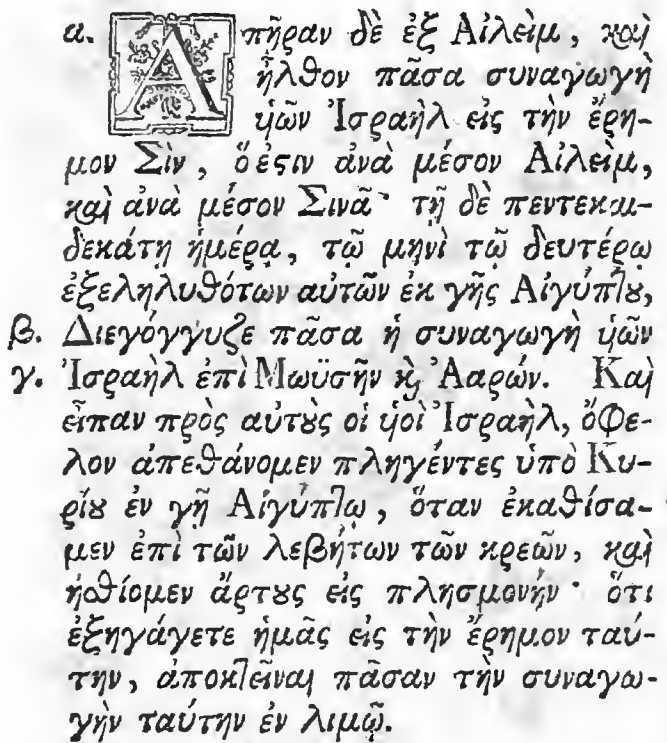 α. Ἀπῆραν δὲ ἐξ Αἰλεὶμ, καὶ
ἦλθον πᾶσα συναγωγὴ
υἱῶν Ἰσραὴλ εἰς τὴν ἔρη-
μον Σὶν, ὅ ἐστιν ἀνὰ μέσον Αἰλεὶμ,
καὶ ἀνὰ μέσον Σινᾶ· τῇ δὲ πεντεκαι-
δεκάτῃ ἡμέρᾳ, τῷ μηνὶ τῷ δευτέρῳ
ἐξεληλυθότων αὐτῶν ἐκ γῆς Αἰγύπτου,
β. Διεγόγγυζε πᾶσα ἡ συναγωγὴ υἱῶν
γ. Ἰσραὴλ ἐπὶ Μωϋσῆν καὶ Ἀαρών. Καὶ
εἶπαν πρὸς αὐτοὺς οἱ υἱοὶ Ἰσραὴλ, ὄφε-
λον ἀπεθάνομεν πληγέντες ὑπὸ Κυ-
ρίου ἐν γῇ Αἰγύπτῳ, ὅταν ἐκαθίσα-
μεν ἐπὶ τῶν λεβήτων τῶν κρεῶν, καὶ
ἠσθίομεν ἄρτους εἰς πλησμονήν· ὅτι
ἐξηγάγετε ἡμᾶς εἰς τὴν ἔρημον ταύ-
την, ἀποκτεῖναι πᾶσαν τὴν συναγω-
γὴν ταύτην ἐν λιμῷ.